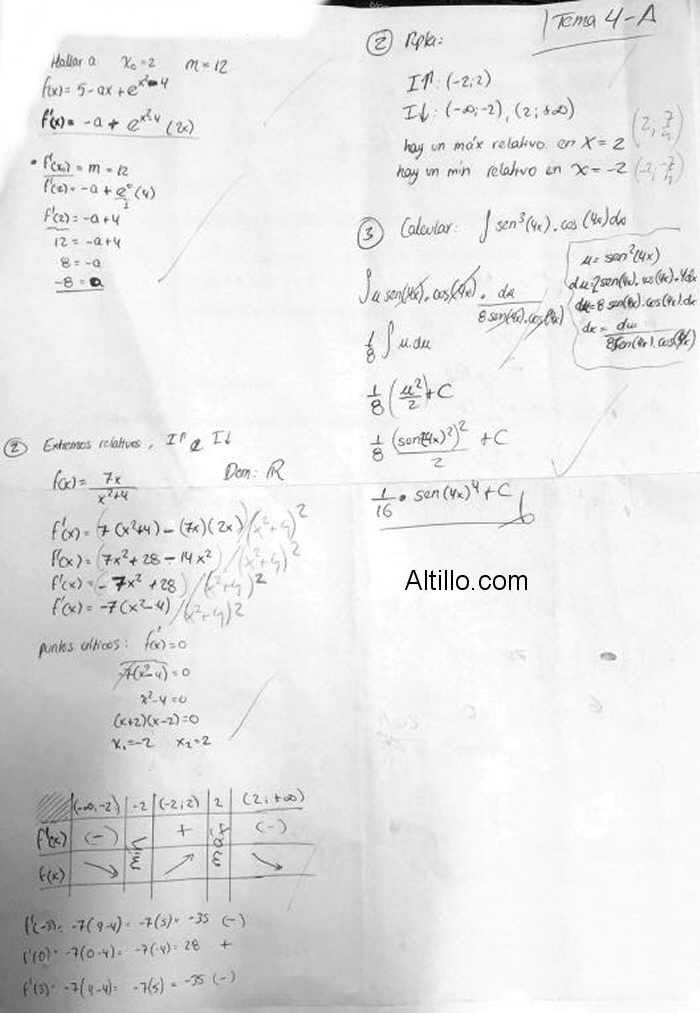 Tema 4-A
Hallar a x₀=2 m=12
f(x)= 5-ax+e^(x²-4)
f'(x)= -a + e^(x²-4) (2x)
• f'(x₀) = m = 12
f'(2)= -a + e⁰ (4)
1
f'(2) = -a+4
12 = -a+4
8 = -a
-8 = a
② Extremos relativos, I↑ e I↓
f(x) = 7x/(x²+4) Dom: R
f'(x) = (7(x²+4) - (7x)(2x)) / (x²+4)²
f'(x) = (7x²+28-14x²) / (x²+4)²
f'(x) = (-7x²+28) / (x²+4)²
f'(x) = -7(x²-4) / (x²+4)²
puntos críticos: f'(x)=0
-7(x²-4)=0
x²-4=0
(x+2)(x-2)=0
x₁=-2 x₂=2
(-∞,-2) -2 (-2;2) 2 (2;+∞)
f'(x) (-) min + max (-)
f(x) ↘ ↗ ↘
f'(-3)= -7(9-4)= -7(5)= -35 (-)
f'(0)= -7(0-4)= -7(-4)= 28 +
f'(3)= -7(9-4)= -7(5) = -35 (-)
② Rpta:
I↑: (-2;2)
I↓: (-∞;-2), (2;+∞)
hay un máx relativo en x=2 (2; 7/4)
hay un mín relativo en x=-2 (-2; -7/4)
③ Calcular: ∫ sen³(4x).cos(4x)dx
u= sen²(4x)
du=2sen(4x).cos(4x).4dx
du=8sen(4x).cos(4x).dx
dx= du/(8sen(4x).cos(4x))
∫ u sen(4x).cos(4x). du/(8sen(4x).cos(4x))
1/8 ∫ u.du
1/8 (u²/2)+C
1/8 (sen(4x)²)²/2 + C
1/16 • sen(4x)⁴+C
Altillo.com